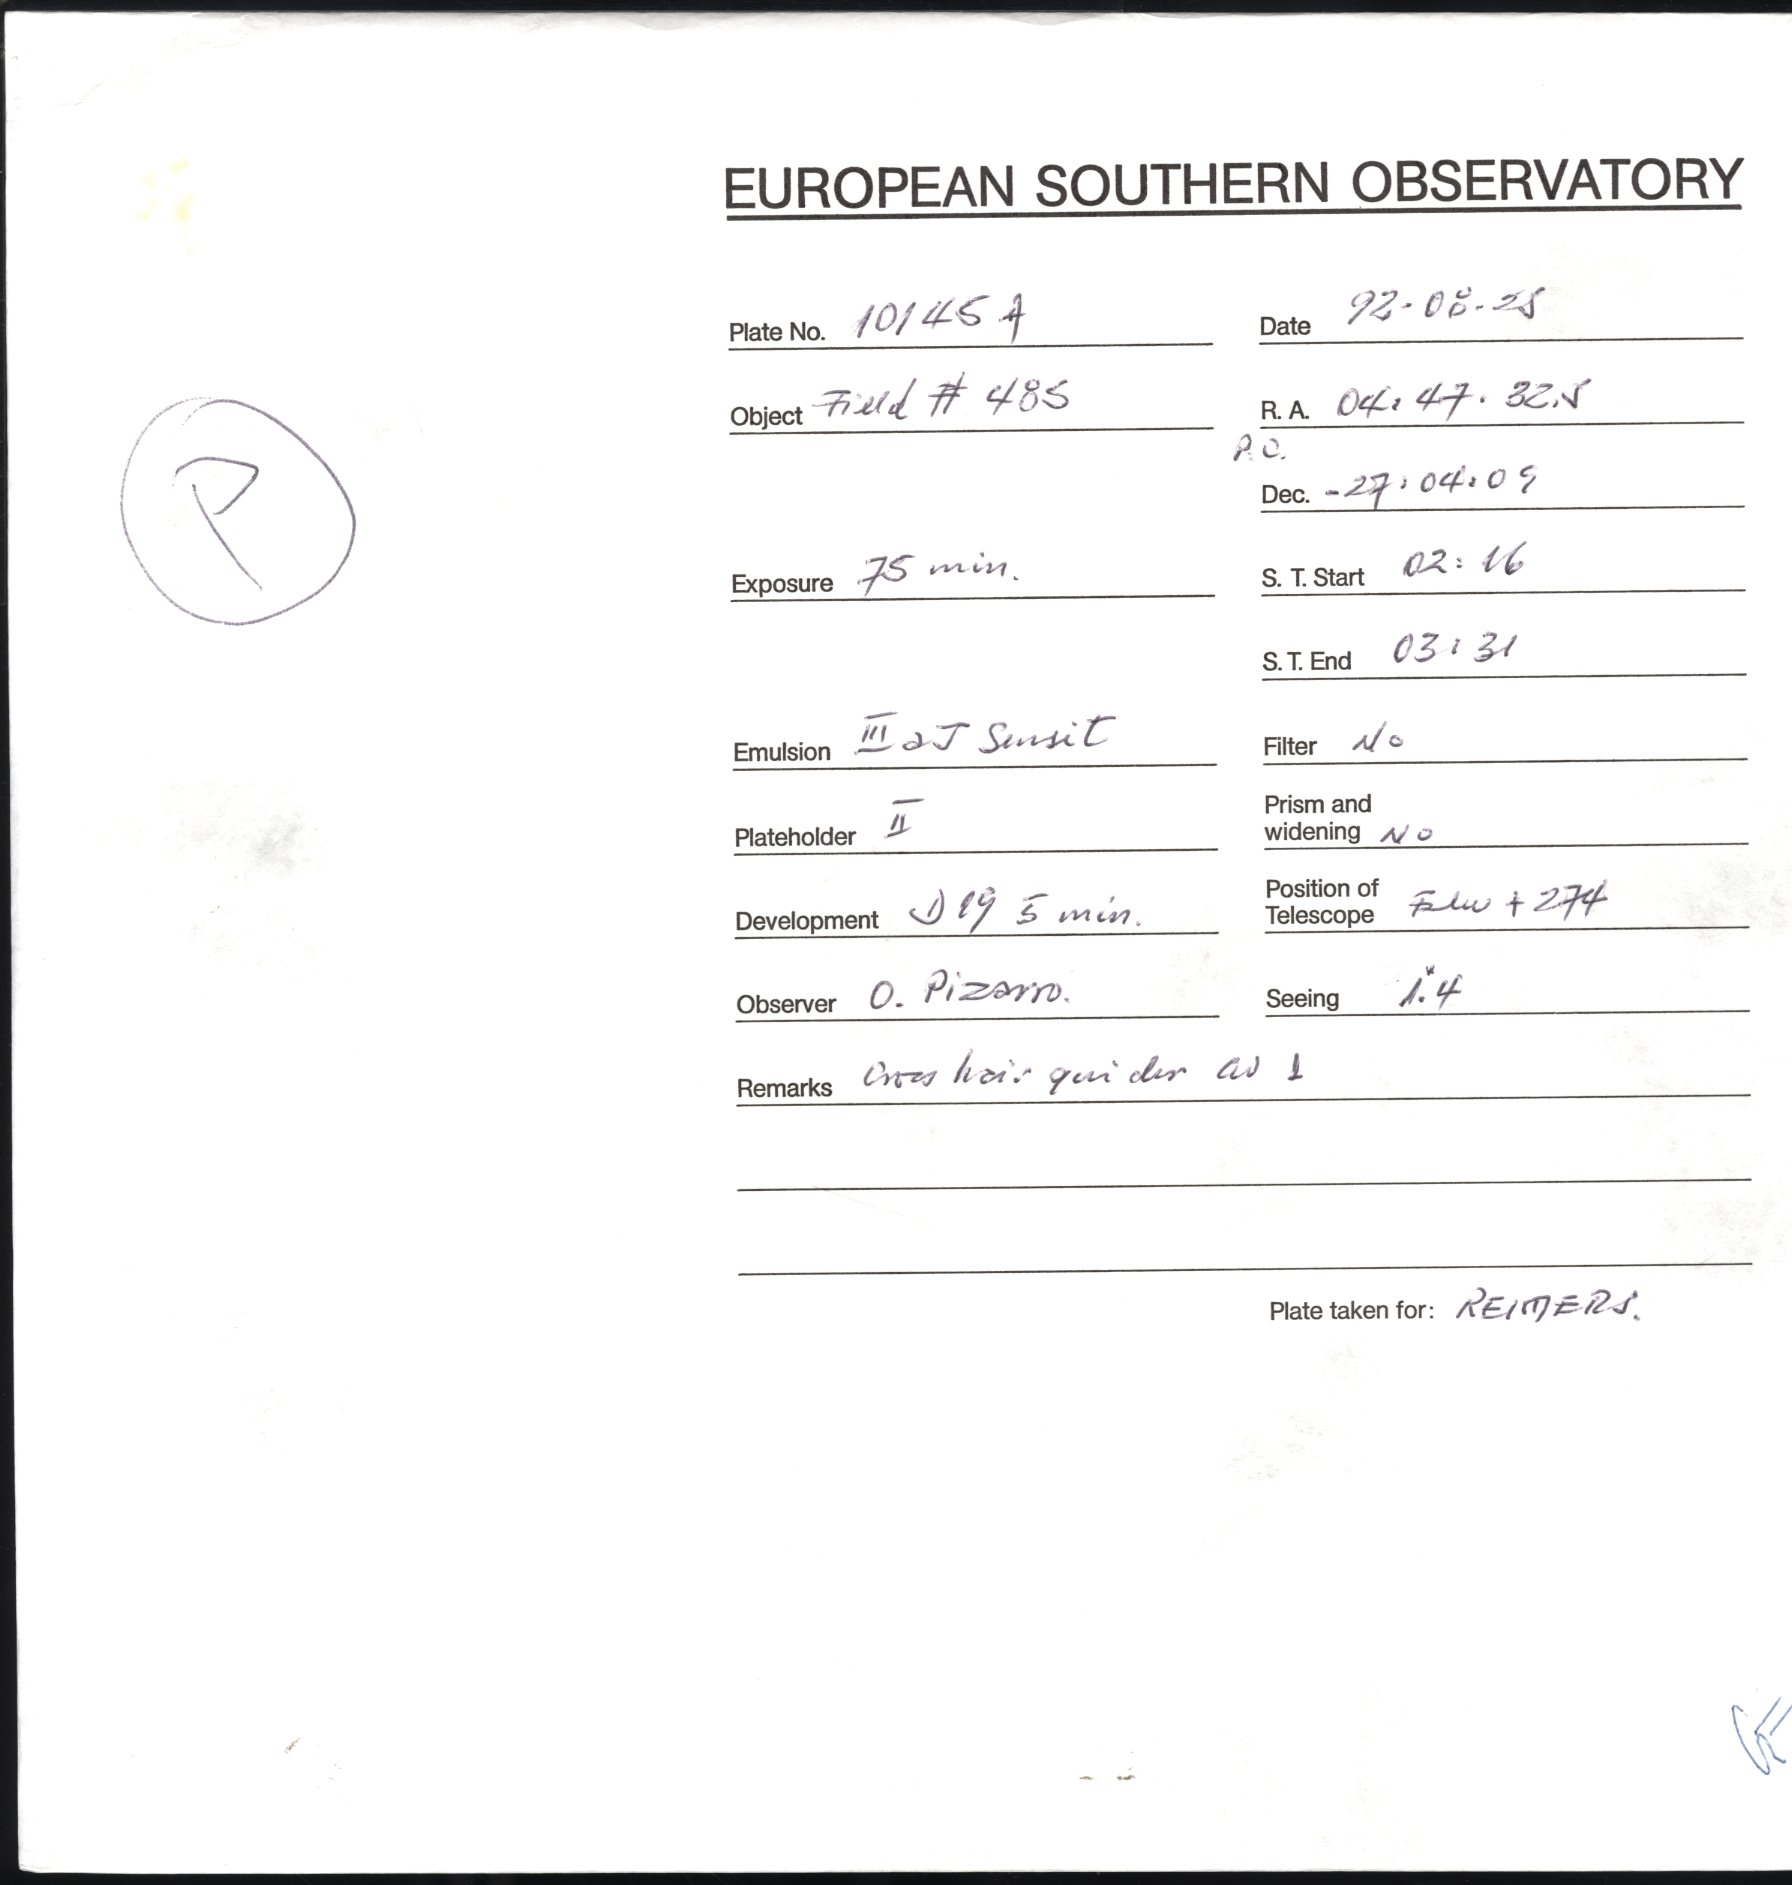 EUROPEAN SOUTHERN OBSERVATORY
Plate No. 10145 A Date 92-08-25
Object Field # 485 R. A. 04:47:32.5
P
P.O.
Dec. -27:04:09
Exposure 75 min. S. T. Start 02:16
S. T. End 03:31
Emulsion III aJ Sensit Filter No
Plateholder II Prism and
widening No
Development D19 5 min. Position of
Telescope +274
Observer O. Pizarro. Seeing 1".4
Remarks Cross hair guider 1
Plate taken for: REIMERS.